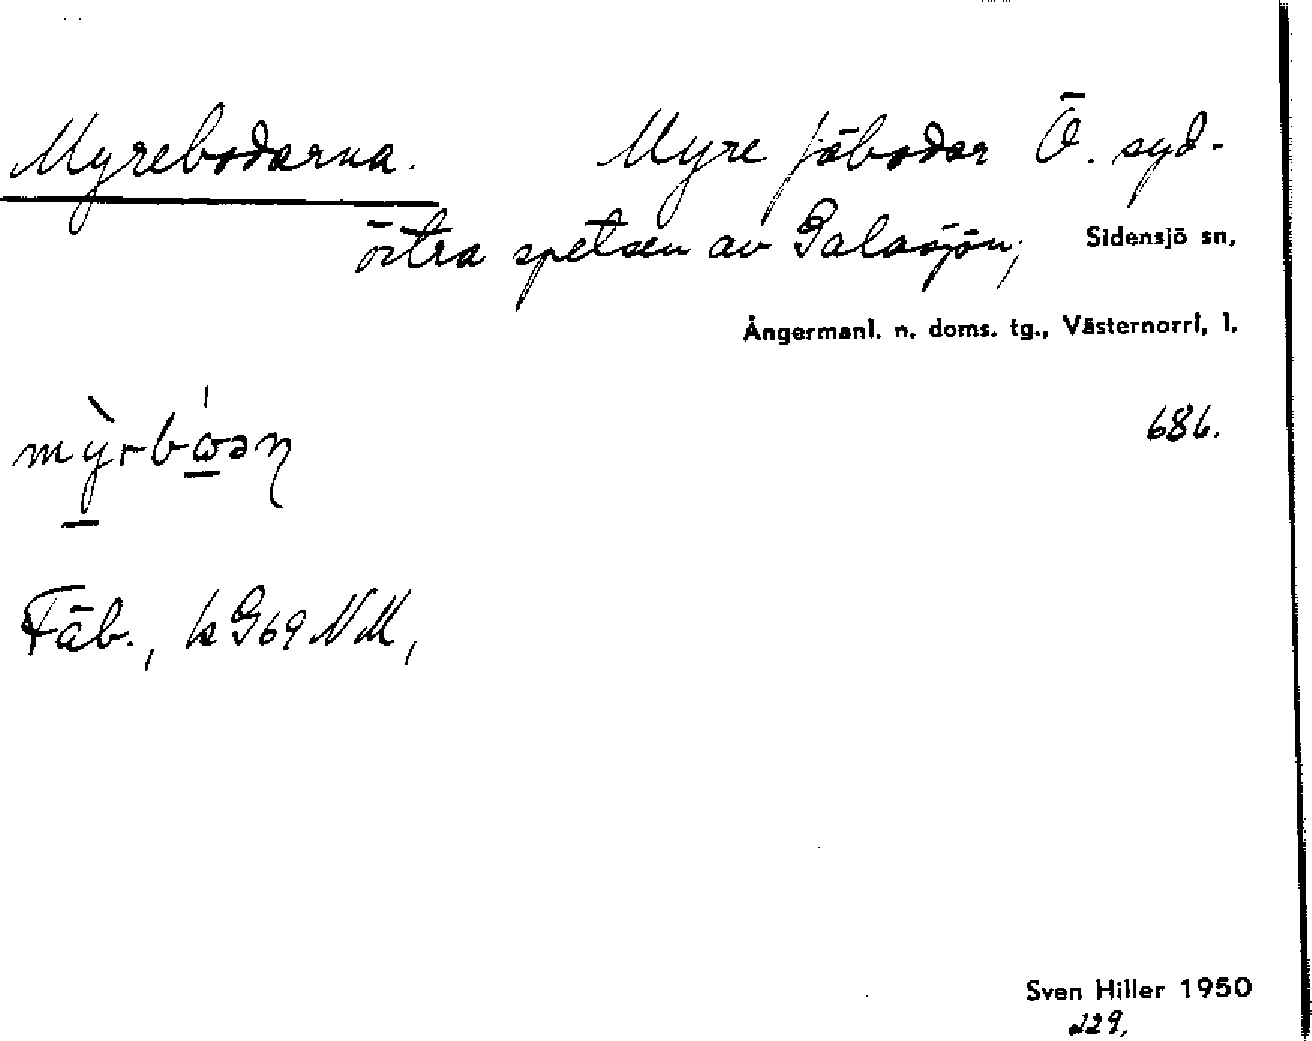 Myrebodarna. Myre fäbodar Ö. syd-
östra spetsen av Galasjön, Sidensjö sn,
Ångermanl. n. doms. tg., Västernorrl, l.
686.
Fäb., k G69 NM,
Sven Hiller 1950
229,